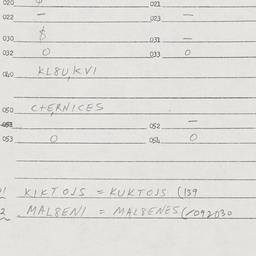 020 $ 021
022 — 023 —
030 $ 031 —
032 0 033 0
040 KL8U,KVI
050 C+ERNICES
051 052 —
053 0 054 0
1 KIKTOJS = KUKTOJS (139
2 MAL8ENI = MAL8ENES (/092030